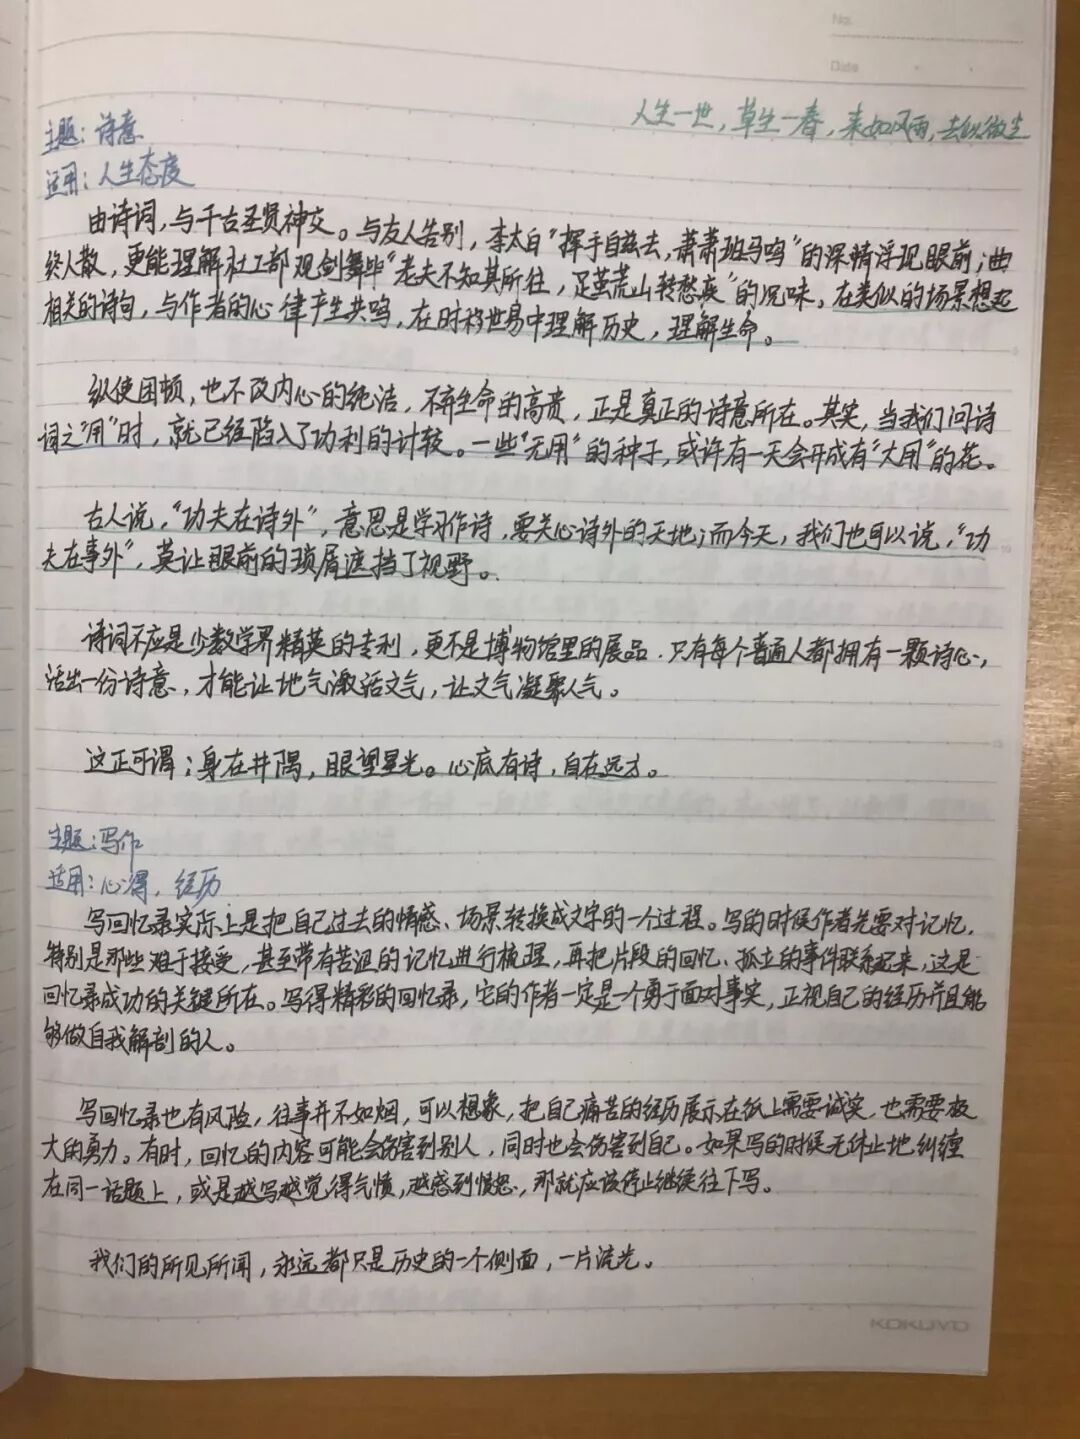 No.
Date
人生一世，草生一春，来如风雨，去似微尘
主题：诗意
运用：人生态度
由诗词，与千古圣贤神交。与友人告别，李太白“挥手自兹去，萧萧班马鸣”的深情浮现眼前；曲
终人散，更能理解杜工部观剑舞毕“老夫不知其所往，足茧荒山转愁疾”的况味。在类似的场景想起
相关的诗句，与作者的心律产生共鸣，在时移世易中理解历史，理解生命。
纵使困顿，也不改内心的纯洁，不弃生命的高贵，正是真正的诗意所在。其实，当我们问诗
词之“用”时，就已经陷入了功利的计较。一些“无用”的种子，或许有一天会开成有“大用”的花。
古人说，“功夫在诗外”，意思是学习作诗，要关心诗外的天地；而今天，我们也可以说，“功
夫在事外”，莫让眼前的琐屑遮挡了视野。
诗词不应是少数学界精英的专利，更不是博物馆里的展品．只有每个普通人都拥有一颗诗心，
活出一份诗意，才能让地气激活文气，让文气凝聚人气。
这正可谓：身在井隅，眼望星光。心底有诗，自在远方。
主题：写作
适用：心得，经历
写回忆录实际上是把自己过去的情感、场景转换成文字的一个过程。写的时候作者先要对记忆，
特别是那些难于接受，甚至带有苦涩的记忆进行梳理，再把片段的回忆、孤立的事件联系起来，这是
回忆录成功的关键所在。写得精彩的回忆录，它的作者一定是一个勇于面对事实，正视自己的经历并且能
够做自我解剖的人。
写回忆录也有风险，往事并不如烟，可以想象，把自己痛苦的经历展示在纸上需要诚实，也需要极
大的勇力。有时，回忆的内容可能会伤害到别人，同时也会伤害到自己。如果写的时候无休止地纠缠
在同一话题上，或是越写越觉得气愤，越感到愤怒，那就应该停止继续往下写。
我们的所见所闻，永远都只是历史的一个侧面，一片流光。
KOKUYO